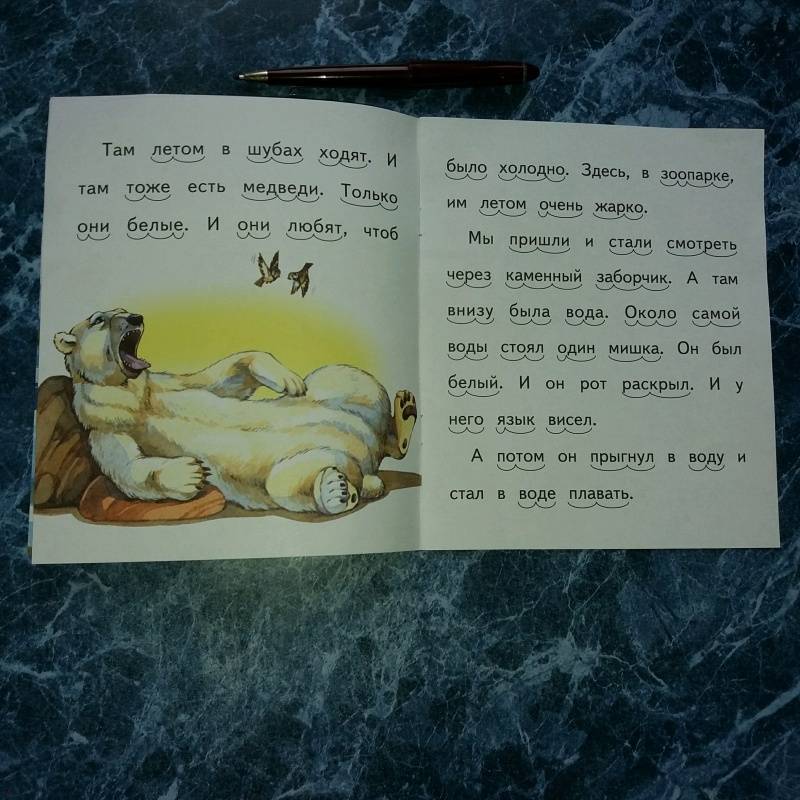 Там летом в шубах ходят. И
там тоже есть медведи. Только
они белые. И они любят, чтоб
было холодно. Здесь, в зоопарке,
им летом очень жарко.
Мы пришли и стали смотреть
через каменный заборчик. А там
внизу была вода. Около самой
воды стоял один мишка. Он был
белый. И он рот раскрыл. И у
него язык висел.
А потом он прыгнул в воду и
стал в воде плавать.